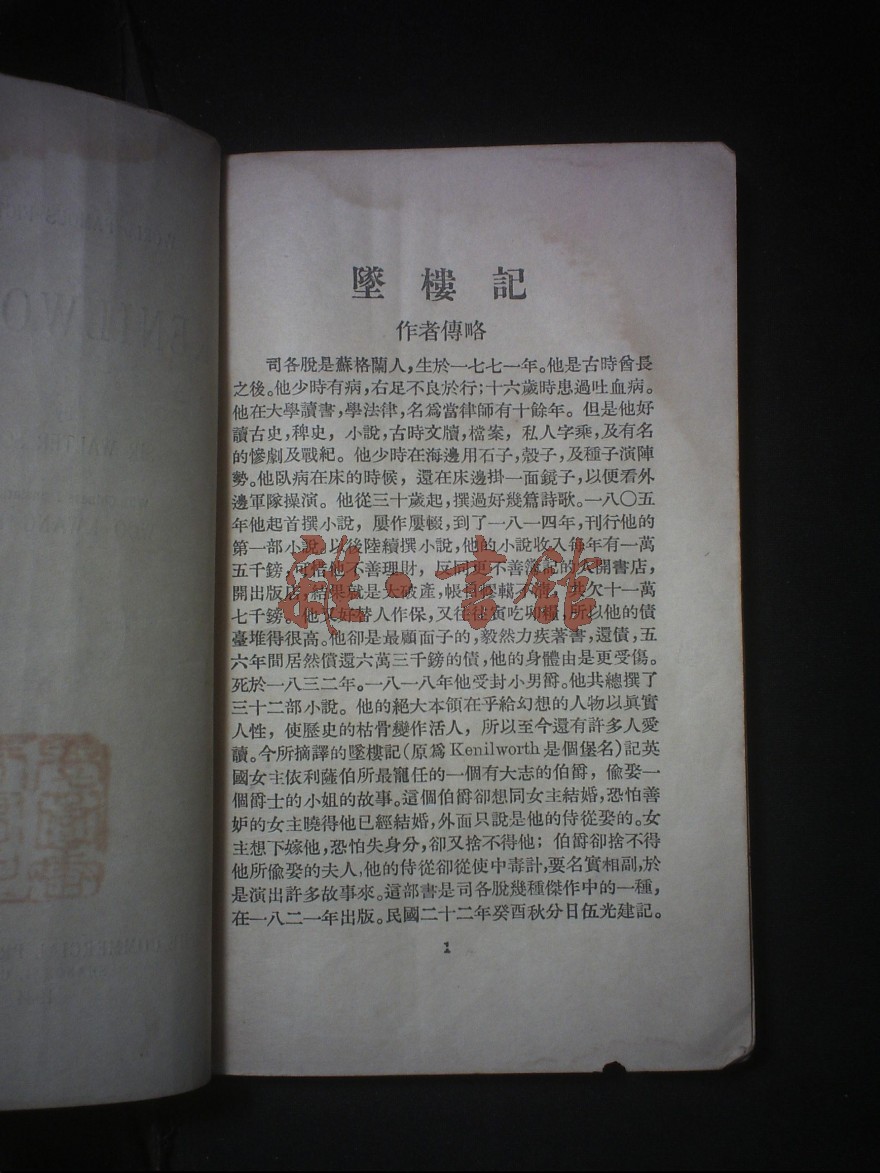 墜樓記
作者傳略
司各脫是蘇格蘭人,生於一七七一年。他是古時酋長
之後。他少時有病,右足不良於行;十六歲時患過吐血病。
他在大學讀書,學法律,名爲當律師有十餘年。但是他好
讀古史,稗史,小說,古時文牘,檔案,私人字乘,及有名
的慘劇及戰紀。他少時在海邊用石子,殼子,及種子演陣
勢。他臥病在床的時候,還在床邊掛一面鏡子,以便看外
邊軍隊操演。他從三十歲起,撰過好幾篇詩歌。一八〇五
年他起首撰小說,屢作屢輟,到了一八一四年,刊行他的
第一部小說。以後陸續撰小說,他的小說收入每年有一萬
五千鎊,可惜他不善理財,反同更不善的人開書店,
開出版店,結果就是大破產,帳目不清,共欠十一萬
七千鎊。他又好替人作保,又往往寅吃卯糧,所以他的債
臺堆得很高。他卻是最顧面子的,毅然力疾著書,還債,五
六年間居然償還六萬三千鎊的債,他的身體由是更受傷。
死於一八三二年。一八一八年他受封小男爵。他共總撰了
三十二部小說。他的絕大本領在乎給幻想的人物以真實
人性,使歷史的枯骨變作活人,所以至今還有許多人愛
讀。今所摘譯的墜樓記(原爲Kenilworth是個堡名)記英
國女主依利薩伯所最寵任的一個有大志的伯爵,偷娶一
個爵士的小姐的故事。這個伯爵卻想同女主結婚,恐怕善
妒的女主曉得他已經結婚,外面只說是他的侍從娶的。女
主想下嫁他,恐怕失身分,卻又捨不得他;伯爵卻捨不得
他所偷娶的夫人,他的侍從卻從使中毒計,要名實相副,於
是演出許多故事來。這部書是司各脫幾種傑作中的一種,
在一八二一年出版。民國二十二年癸酉秋分日伍光建記。
1
雜·書館